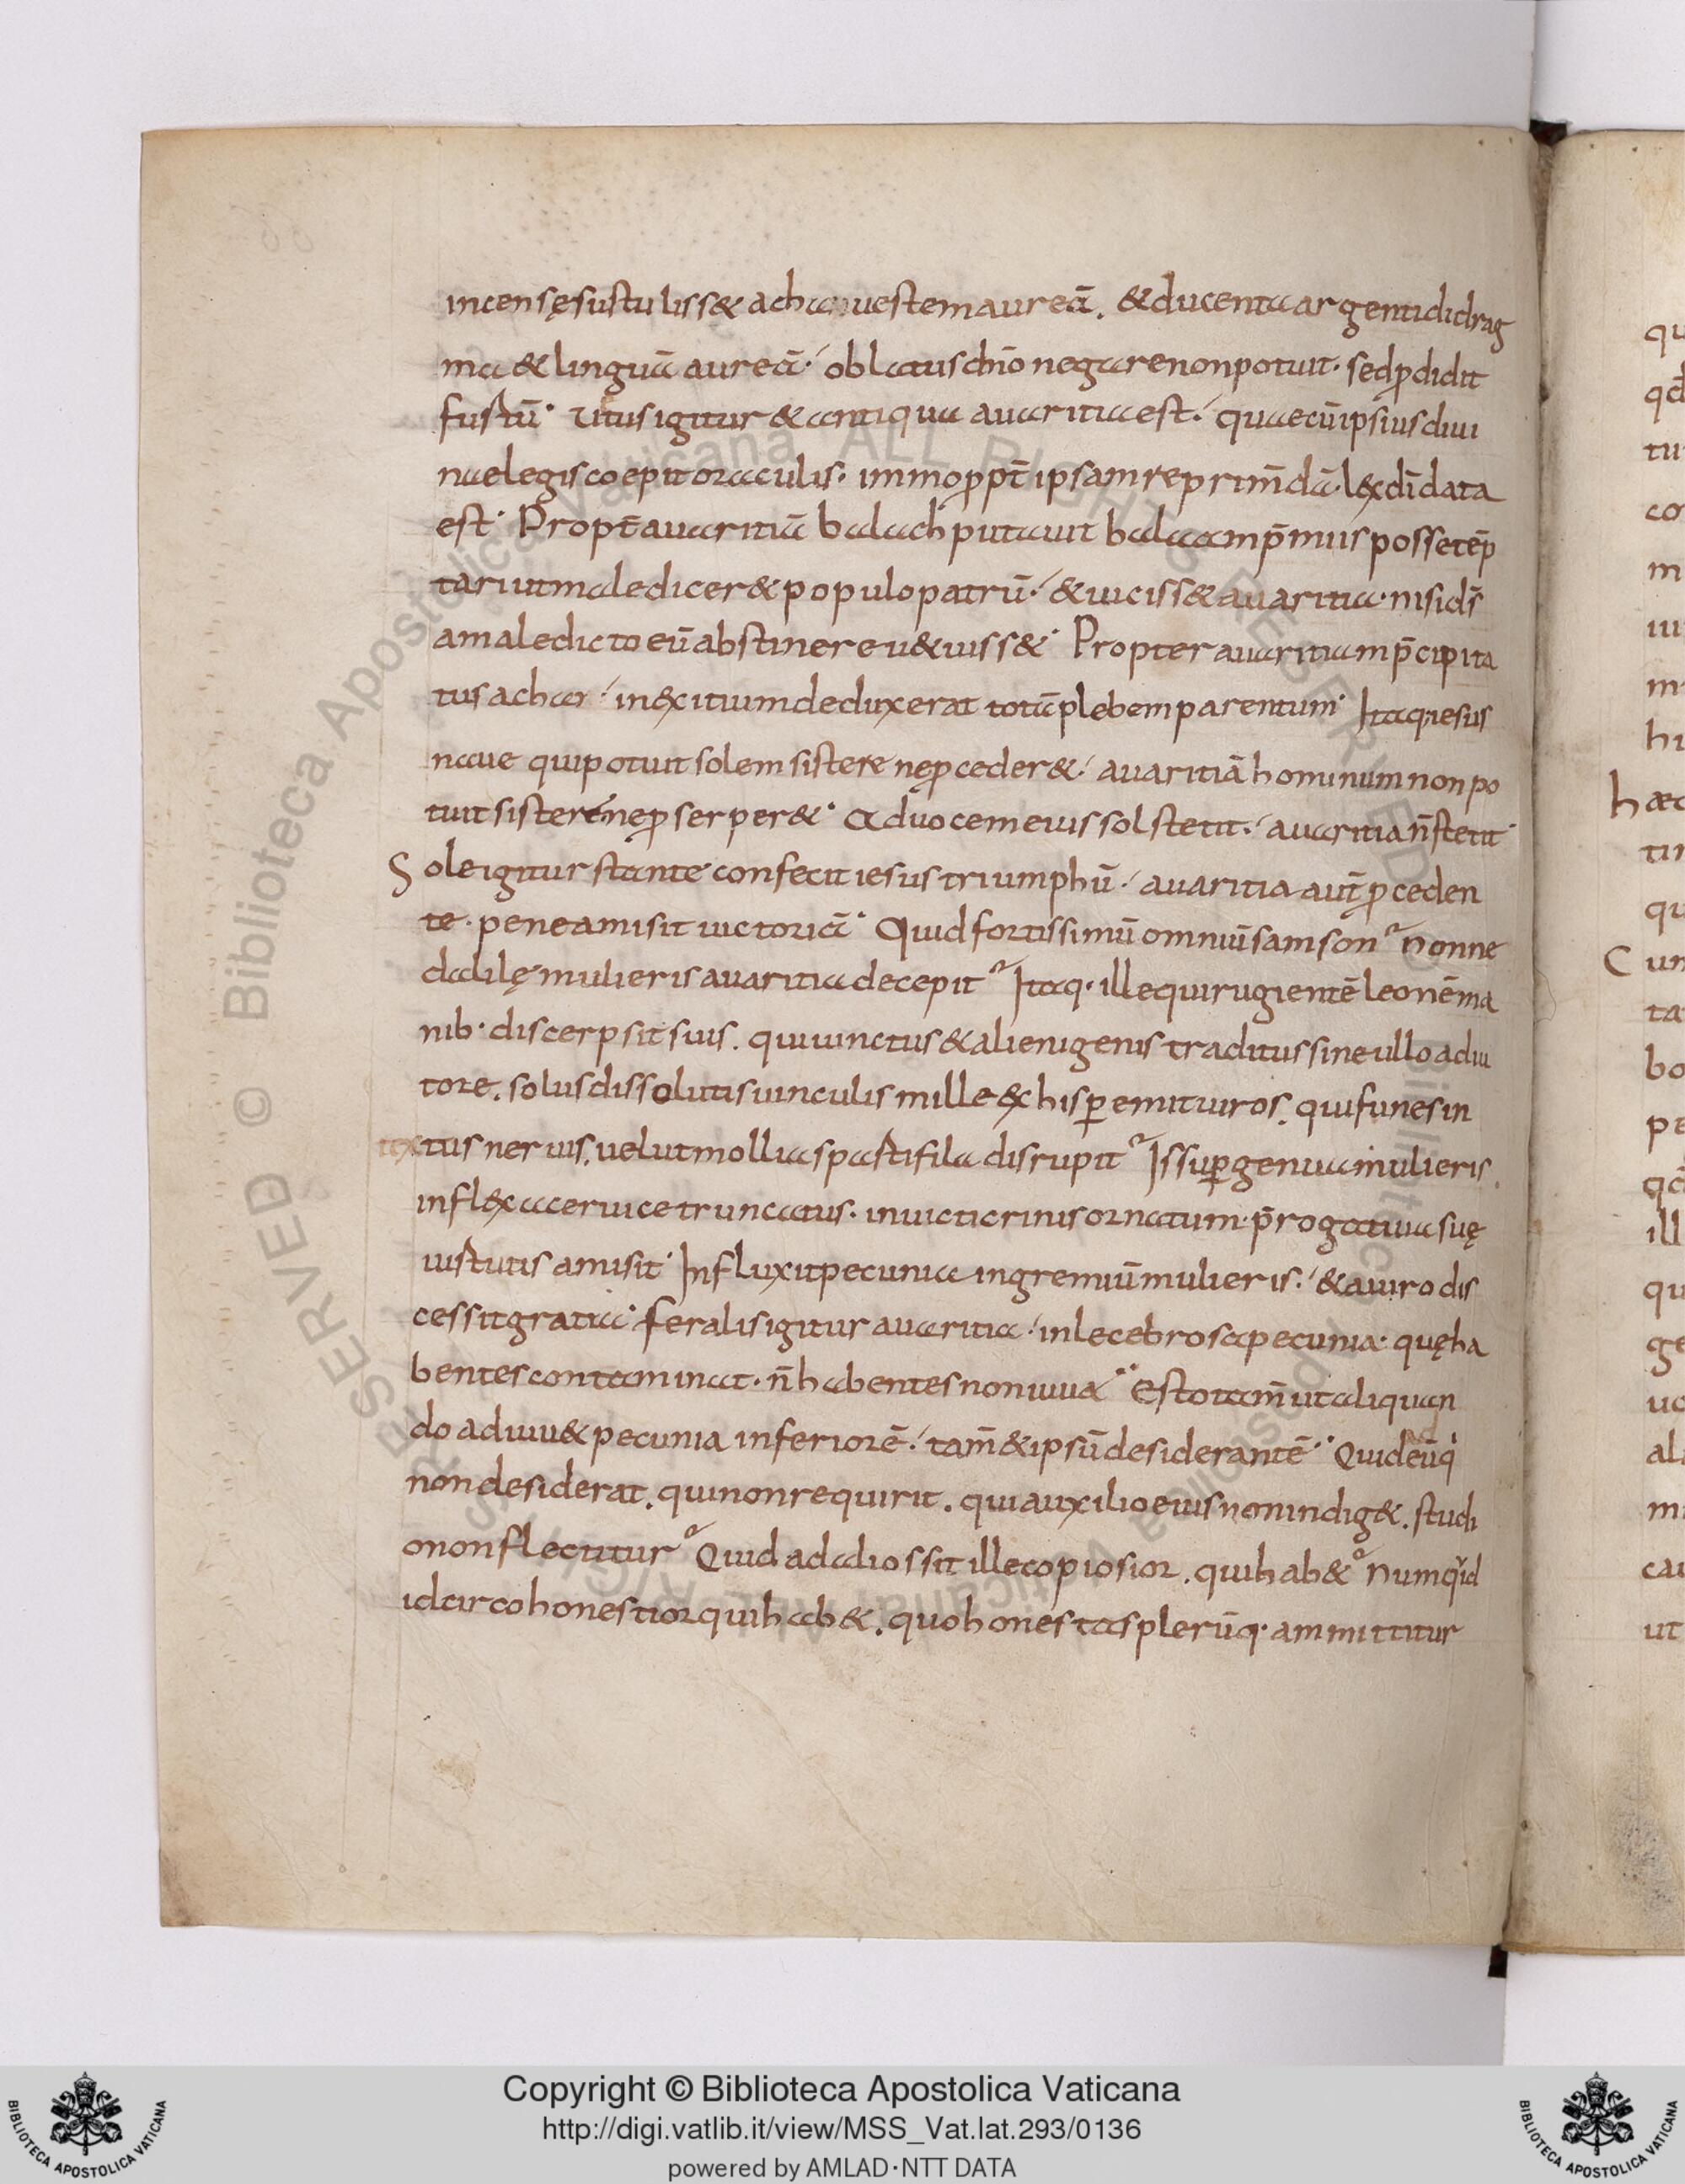 incensę sustulisset achar uestem aureā. & ducenta argenti didrag
ma & linguā aureā. oblatus dn̄o negare non potuit. sed ꝓdidit
fustū. Vetus igitur & antiqua auaritia est. quae cū ipsius diui
nae legis coepit oraculis. immo ꝓpt̄ ipsam reprim̄dā lex di data
est. Propt̄ auaritiā balach putauit balaam p̄miis posse tēp
tari ut malediceret populo patrū. & uicisset auaritia. nisi ds̄
a maledicto eū abstinere uetuisset. Propter auaritiam p̄cipita
tus achar. in exitium deduxerat totā plebem parentum. Itaq; iesus
naue qui potuit solem sistere ne ꝓcederet. auaritiā hominum non po
tuit sistere ne ꝓserperet. Ad uocem eius sol stetit. auaritia n̄ stetit.
Sole igitur stante confecit iesus triumphū. auaritia aut̄ ꝓceden
te. pene amisit uictoriā. Quid fortissimū omniū samson? Nonne
dalilę mulieris auaritia decepit? Itaq. ille qui rugientē leonē ma
nib. discerpsit suis. qui uinctus & alienigenis traditus sine ullo adiu
tore. solus dissolutis uinculis mille ex his ꝑemit uiros. qui funes in
textus neruis. uelut mollia sparti fila disrupit? Is suꝑ genua mulieris
inflexa ceruice truncatus. inuicti crinis ornatum p̄rogatiua suę
uirtutis amisit. Influxit pecunia in gremiū mulieris. & a uiro dis
cessit gratia. feralis igitur auaritia. inlecebrosa pecunia. quę ha
bentes contaminat. n̄ habentes non iuuat. Esto tam̄ ut aliquan
do adiuuet pecunia inferiorē. tam̄ & ipsū desiderantē. Quid ad eū q
non desiderat. qui non requirit. qui auxilio eius non indiget. studi
o non flectitur? Quid ad alios sit ille copiosior. qui habet? Numquid
idcirco honestior qui habet. quo honestas plerūq. ammittitur
qu
co
m
hi
haec
qu
Cum
ta
bo
pe
ill
qu
ge
ut
Copyright © Biblioteca Apostolica Vaticana
http://digi.vatlib.it/view/MSS_Vat.lat.293/0136
powered by AMLAD·NTT DATA